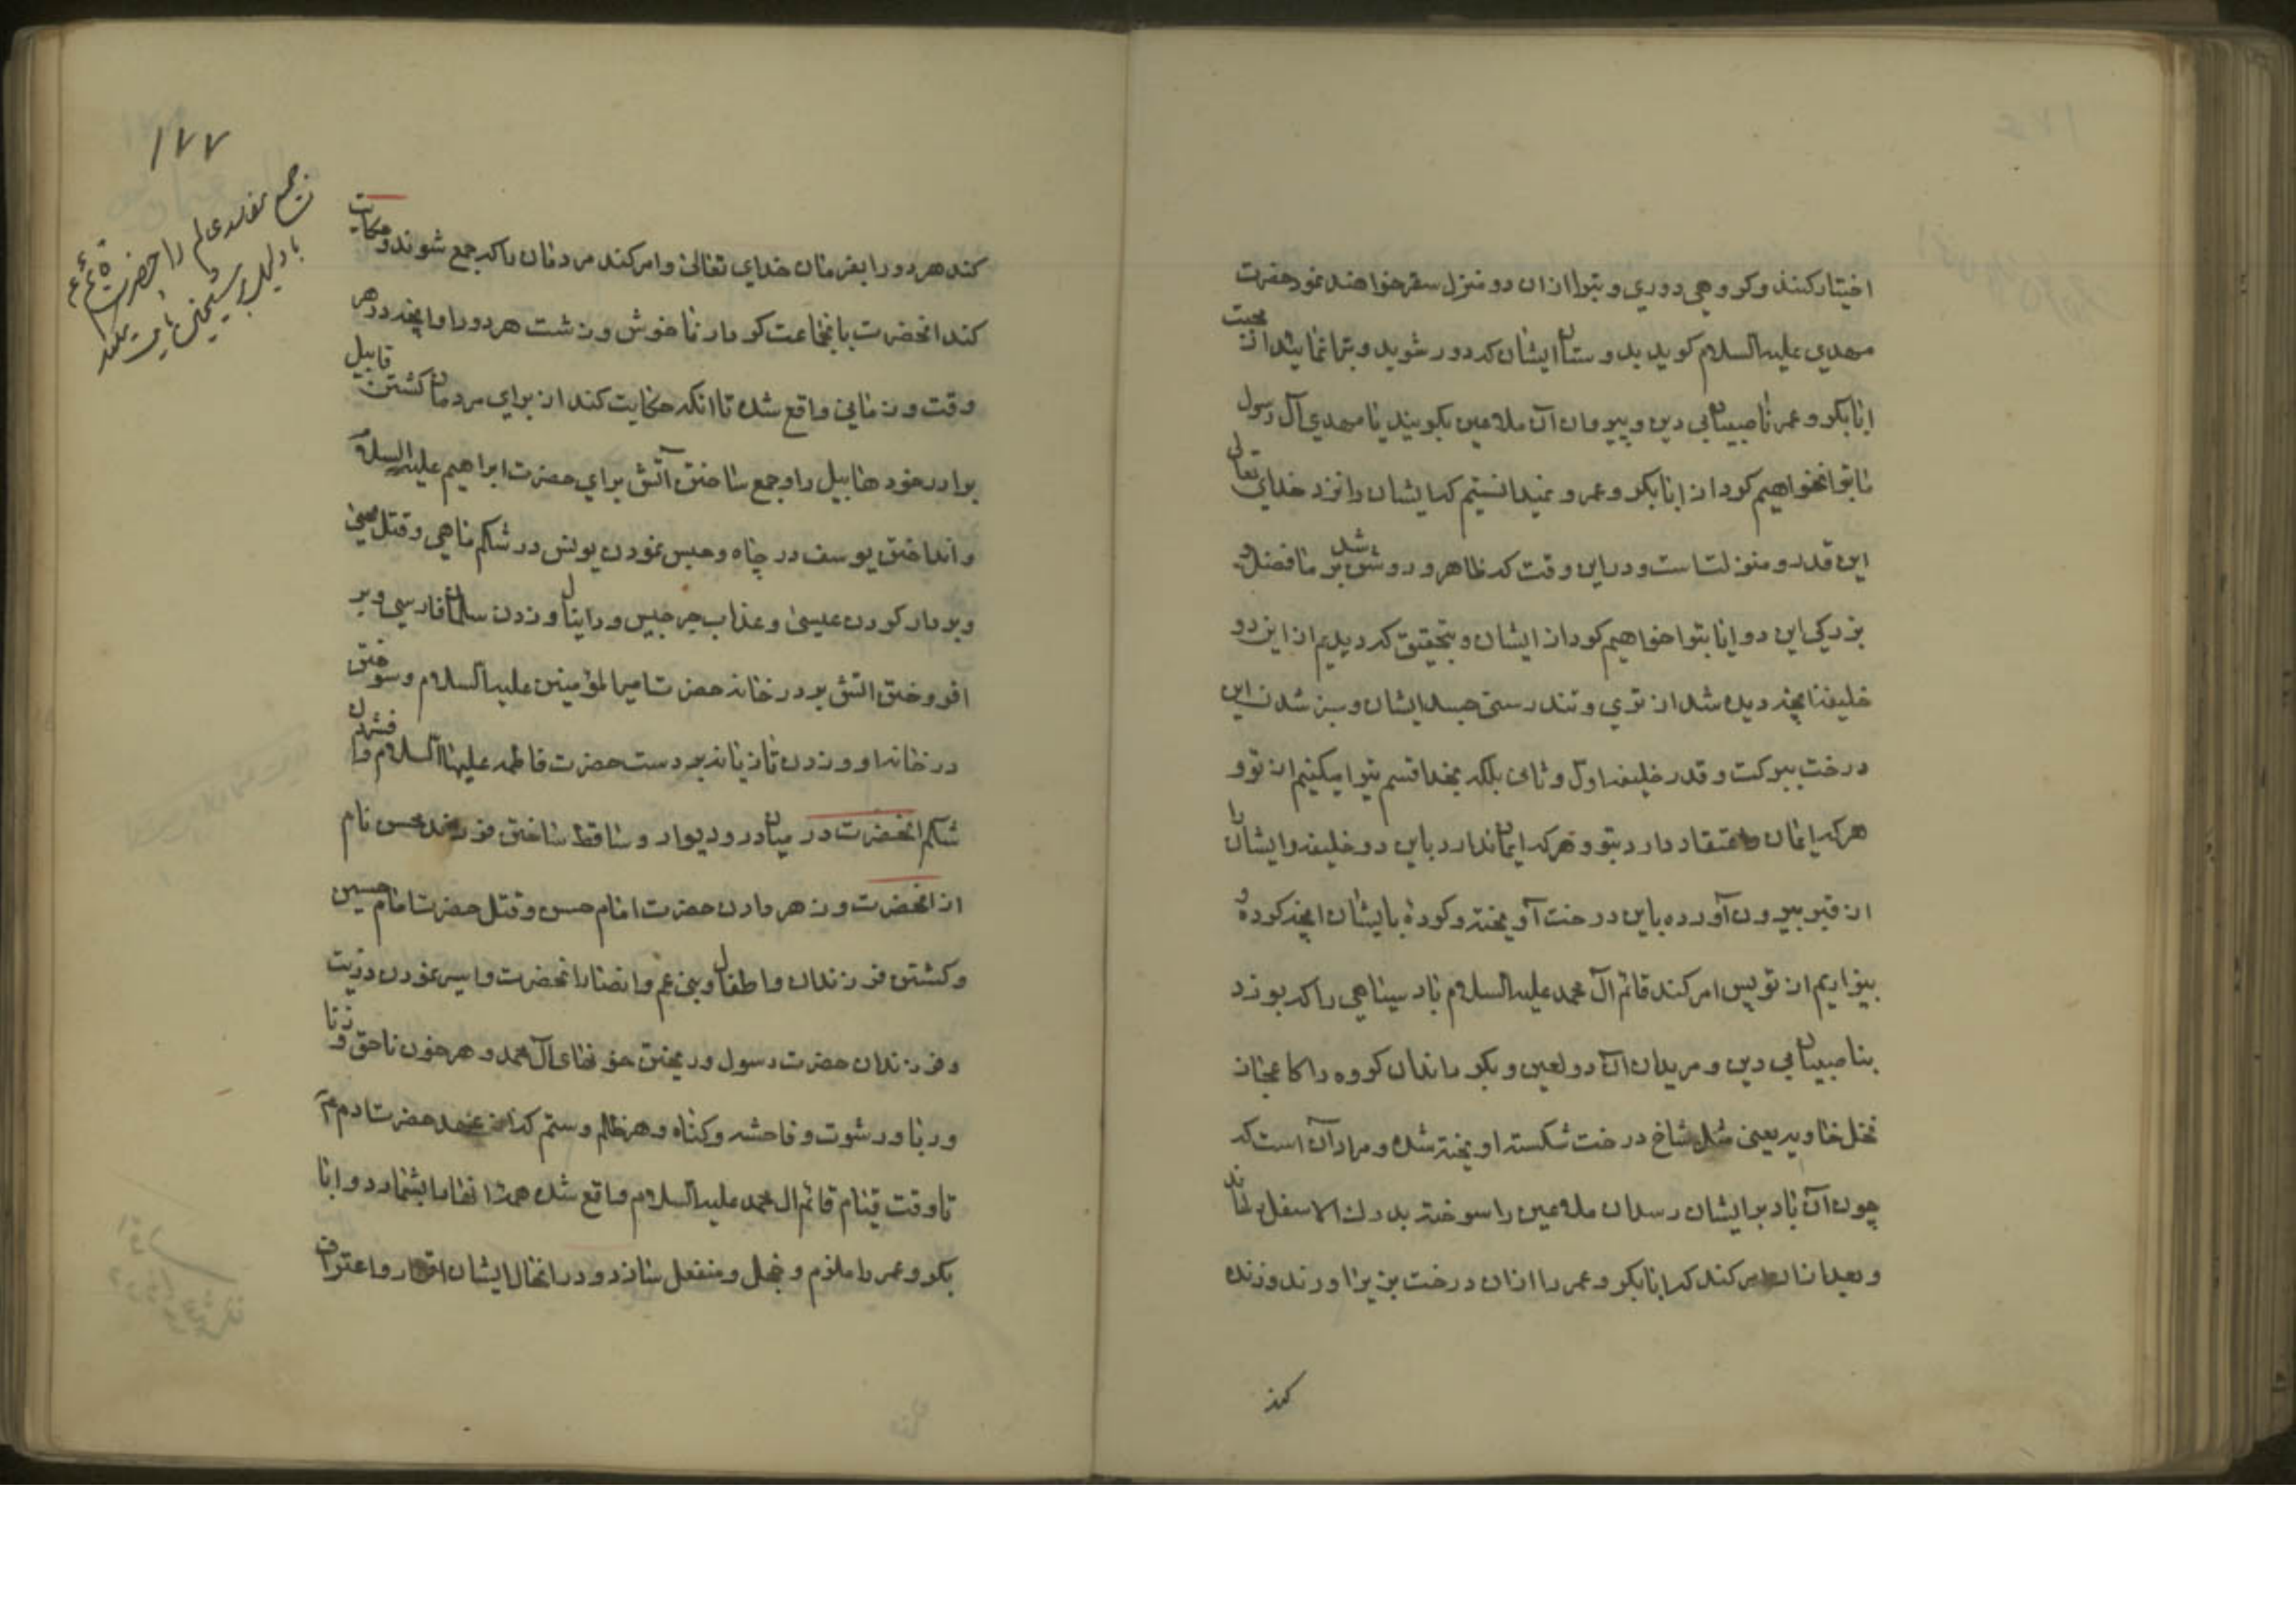 اختیار کنند و کروهی دوری و تبرا ازان دو منزل سقر خواهند نمود حضرت
مهدی علیه السلام کوید بدوستان ایشان که دور شوید و تبرا نمایید از محبت
ابابکر و عمر ناصبیان بی دین و پیروان آن ملاعین بکویند یا مهدی آل رسول
ما تبرا نخواهیم کرد از ابابکر و عمر و نمیدانستیم که ایشان را نزد خدای تعالی
این قدر و منزلت است و دراین وقت که ظاهر و روشن شد بر ما فضل و
بزرکی این دو ایا تبرا خواهیم کرد از ایشان و بتحقیق که دیدیم از این دو
خلیفه انچه دیده شد از تری و تندرستی جسد ایشان و سبز شدن این
درخت ببرکت و قدر خلیفه اول و ثانی بلکه بخدا قسم تبرا میکنیم از تو و
هر که ایمان و اعتقاد دارد بتو و هر که ایمان ندارد باین دو خلیفه و ایشان را
از قبر بیرون آورده باین درخت آویخته و کرده بایشان انچه کرده و
بیزاریم از تو پس امر کند قائم آل محمد علیه السلام باد سیاهی را که بوزد
بناصبیان بی دین و مریدان آن دو لعین و بکرداند آن کروه را کاعجاز
نخل خاویه یعنی مثل شاخ درخت شکسته اویخته شده و مراد آن است که
چون آن باد برایشان رسد آن ملاعین را سوخته بدرک الاسفل رساند
و بعد ازان امر کند که ابابکر و عمر را ازان درخت بزیر اورند و زنده
کند
۱۷۷
کند هر دو را بفرمان خدای تعالی وامر کند مردمان را که جمع شوند و حکایت
کند انحضرت بانجماعت کردار ناخوش و زشت هر دو را و انچه در هر
وقت و زمانی واقع شده تا انکه حکایت کند از برای مردمان کشتن قابیل
برادر خود هابیل را و جمع ساختن آتش برای حضرت ابراهیم علیه السلام
و انداختن یوسف در چاه و حبس نمودن یونس در شکم ماهی و قتل یحیی
و بردار کردن عیسی و عذاب جرجیس و دانیال و زدن سلمان فارسی و بر
افروختن اتش بر در خانه حضرت امیرالمؤمنین علیه السلام و سوختن
در خانه او و زدن تازیانه بر دست حضرت فاطمه علیها السلام و فشردن
شکم انحضرت در میان در و دیوار و ساقط ساختن فرزند محسن نام
از انحضرت و زهر دادن حضرت امام حسن و قتل حضرت امام حسین
و کشتن فرزندان و اطفال و بنی عم و انصار انحضرت و اسیر نمودن ذریت
و فرزندان حضرت رسول و ریختن خونهای آل محمد و هر خون ناحق و زنا
و ربا و رشوت و فاحشه و کناه و هر ظلم و ستم که از عهد حضرت ادم ع
تا وقت قیام قائم ال محمد علیه السلام واقع شده همه انها را بشمارد و ابا
بکر و عمر را ملزم و خجل و منفعل سازد و در انحال ایشان اقرار و اعتراف